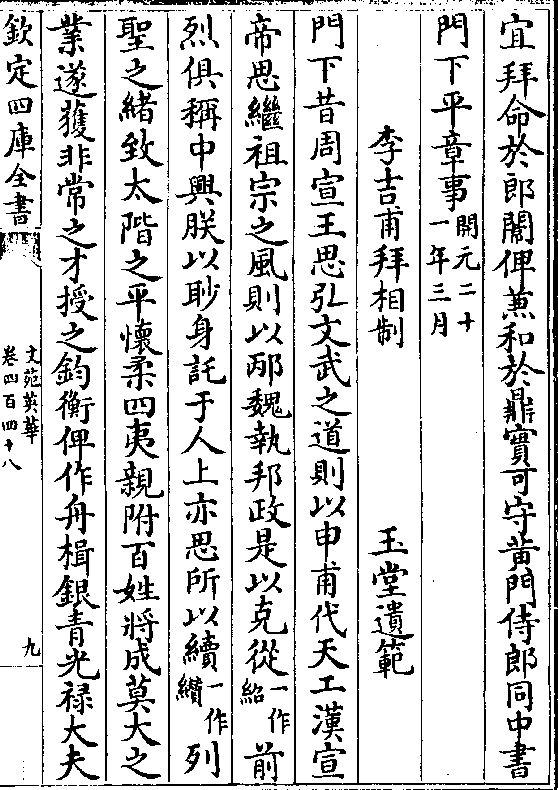 宜拜命於郎闈俾兼和於鼎實可守黄門侍郎同中書
門下平章事開元二十一年三月
李吉甫拜相制　玉堂遺範
門下昔周宣王思弘文武之道則以申甫代天工漢宣
帝思繼祖宗之風則以邴魏執邦政是以克從一作紹前
烈俱稱中興朕以眇身託于人上亦思所以續一作纘列
聖之緒致太階之平懷柔四夷親附百姓將成莫大之
業遂獲非常之才授之鈞衡俾作舟楫銀青光禄大夫
欽定四庫全書
文苑英華
卷四百四十八
九